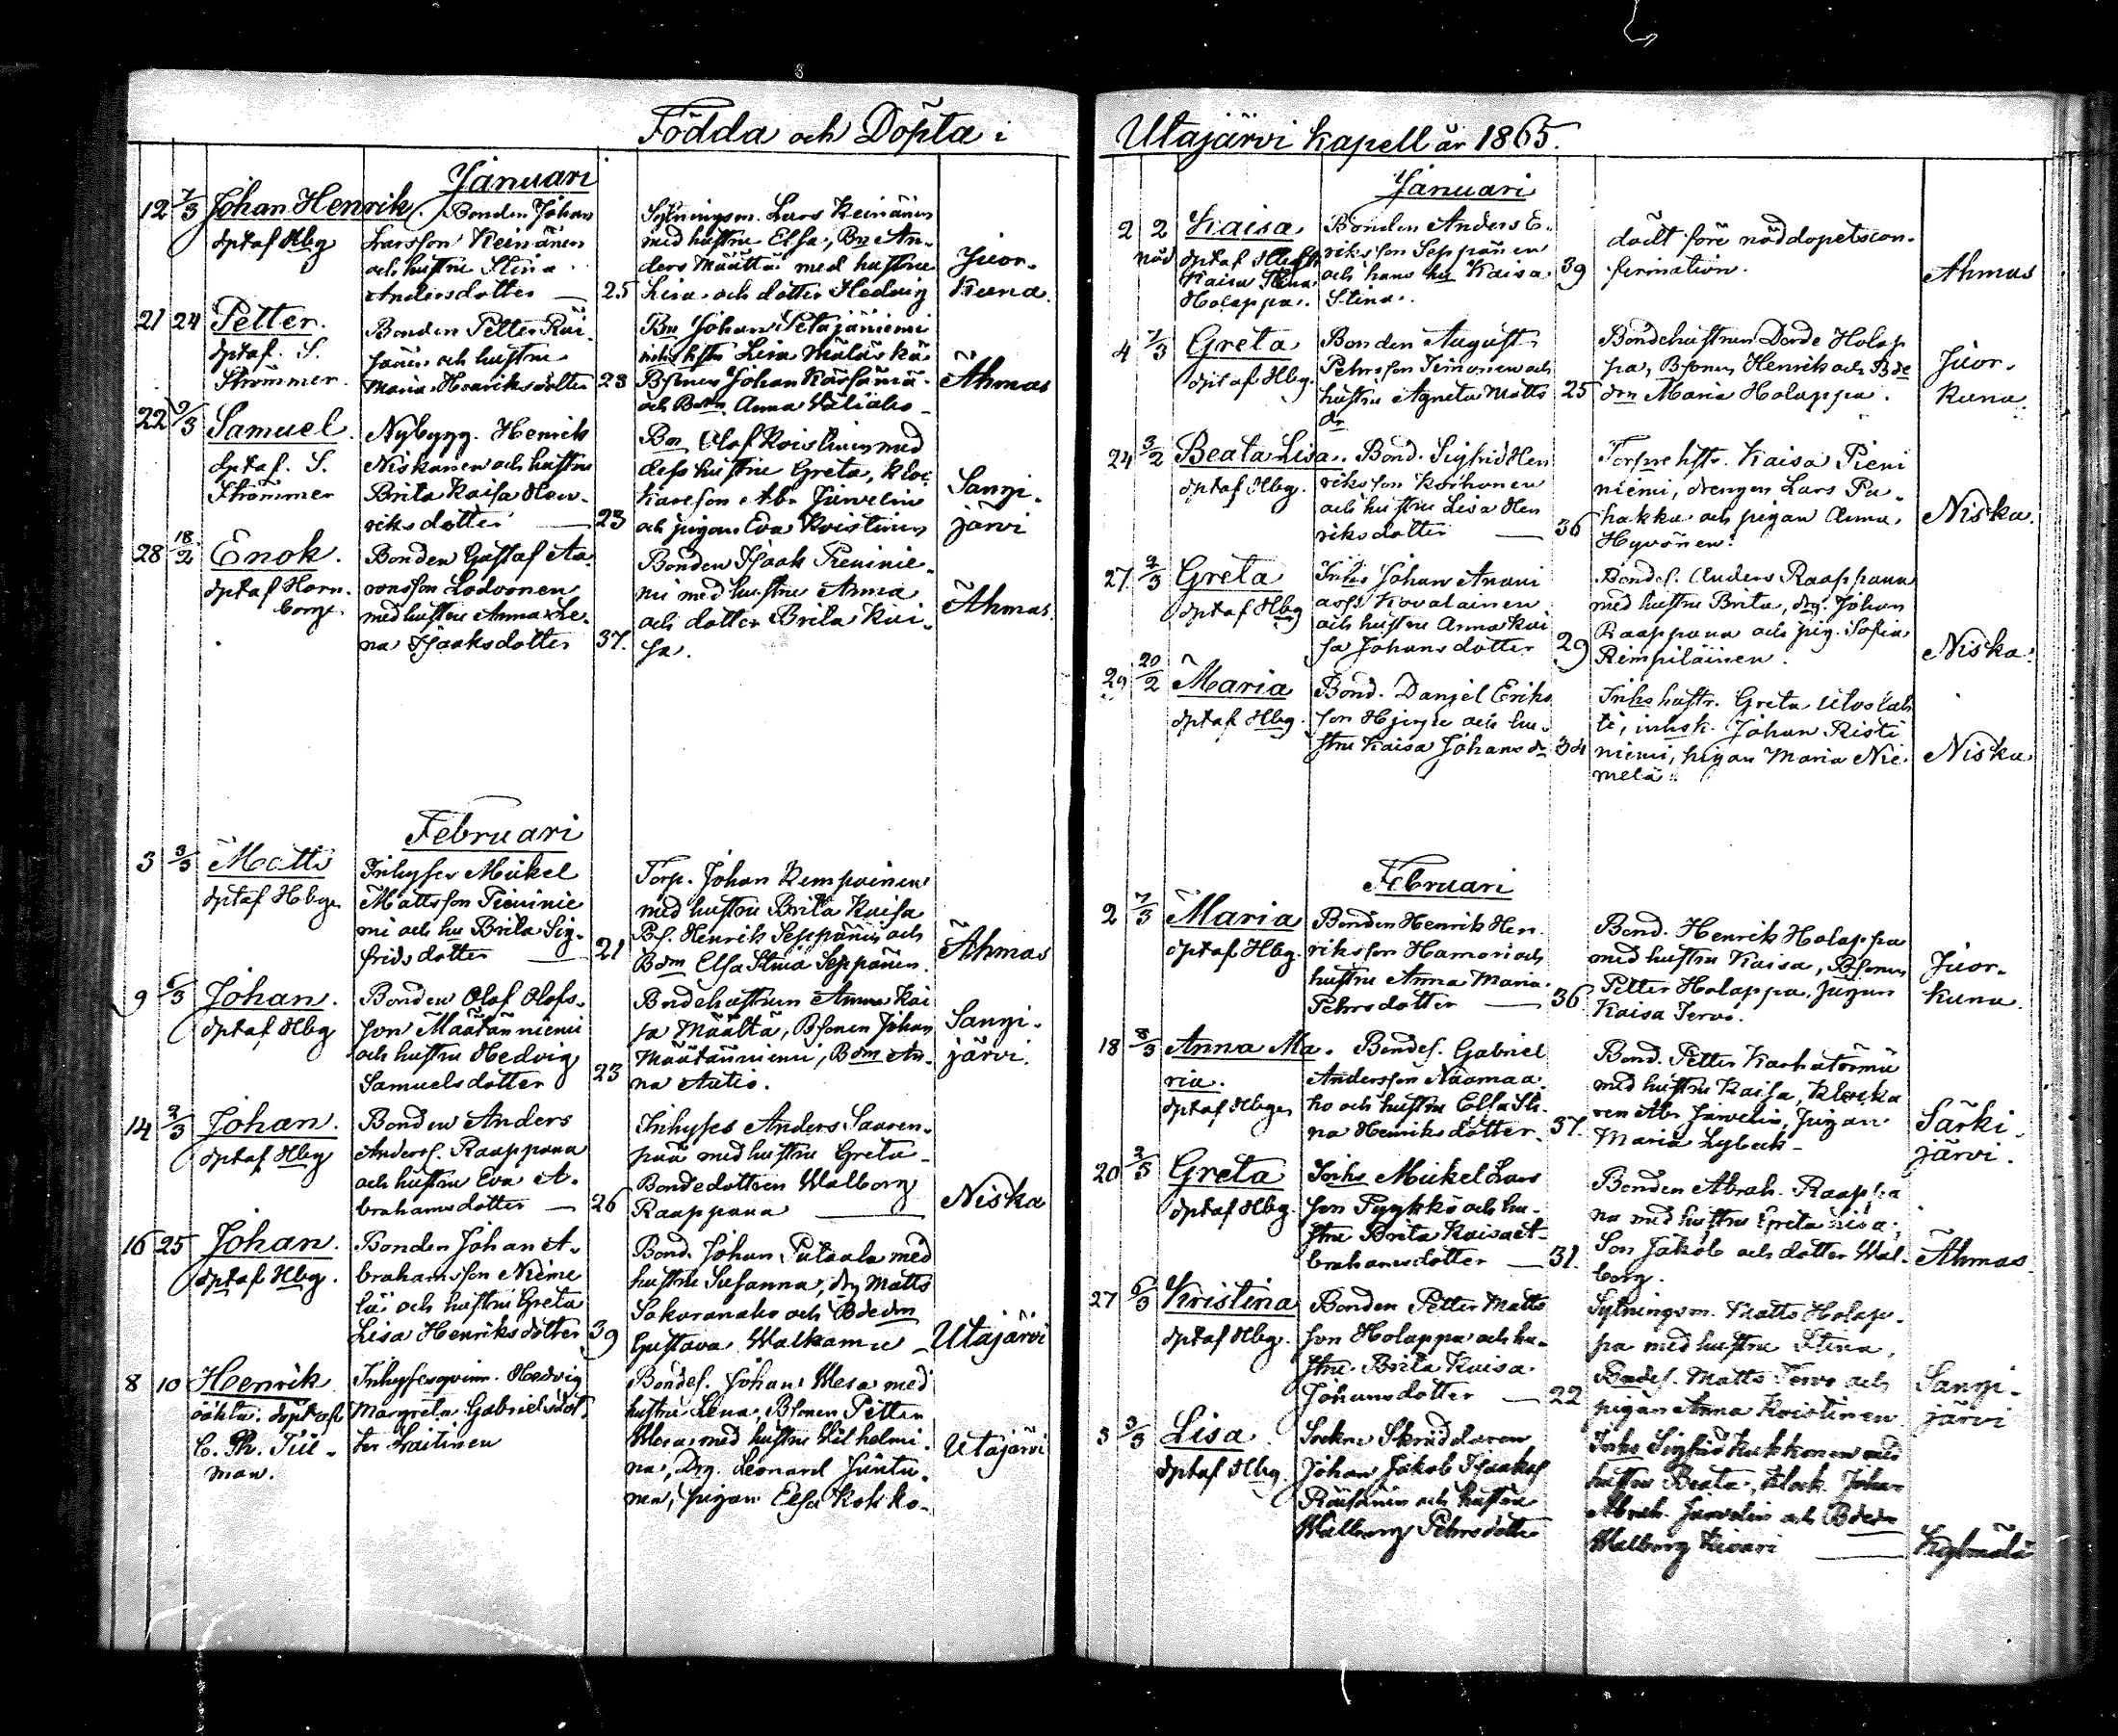 Födda och Döpta i
Januari
12 7/3 Johan Henrik. Bonden Johan
Larsson Keinänen
och hustru Stina
Andersdotter — 25
dpt af Hbg
Sytningsm. Lars Keinänen
med hustru Elsa, Bn An-
ders Määttä med hustru
Lisa och dotter Hedvig
Juor-
kuna
21 24 Petter.
dpt af. S.
Strömmer.
Bonden Petter Räi-
sänen och hustru
Maria Henriksdotter 23
Bn Johan Petäjäniemi
hustru Lisa Mäläskä
Bsonen Johan
och Bdm Anna Väliaho
Ahmas
22 9/3 Samuel.
dpt af. S.
Strömmer
Nybygg. Henrik
Niskanen och hustru
Brita Kaisa Hen-
riksdotter — 23
Bn Olof Koistinen med
dess hustru Greta, kloc
kareson Abr. Järvelin
och pigan Eva Koistinen
Sangi-
järvi
28 18/2 Enok.
dpt af Horn-
borg.
Bonden Gustaf Aa-
ronsson Lodvonen
med hustru Anna Le-
na Isaaksdotter 37.
Bonden Isaak Pieninie-
mi med hustru Anna
och dotter Brita Kai-
sa.
Ahmas
Februari
3 3/3 Matts
dpt af Hbg
Inhyses Mickel
Mattsson Pieninie
mi och hu Brita Sig-
fridsdotter — 21
Torp. Johan Kempainen
med hustru Brita Kaisa
Bs. Henrik Seppänen och
Bdm Elsa Stina Seppänen.
Ahmas
9 6/3 Johan.
dpt af Hbg
Bonden Olof Olofs-
son Määtänniemi
och hustru Hedvig
Samuelsdotter 23
Bndehustrun Anna Kai
sa Määttä, Bsonen Johan
Määtänniemi, Bdm An-
na Autio.
Sangi-
järvi.
14 2/3 Johan.
dpt af Hbg
Bonden Anders
Anderss. Raappana
och hustru Eva A-
brahamsdotter — 26
Inhyses Anders Sauren-
pää med hustru Greta
Bondedottren Walborg
Raappana —
Niska
16 25 Johan.
dpt af Hbg.
Bonden Johan A-
brahamsson Nieme
lä och hustru Greta
Lisa Henriksdotter 39
Bond. Johan Putaala med
hustru Susanna, drg Matts
Sakaranaho och Bdedm
Gustava Walkama
Utajärvi
8 10 Henrik
oäkta. döpt af
C. Th. Tiil-
man.
Inhysesqvinn. Hedvig
Margreta Gabrielsdot-
ter Laitinen
Bondes. Johan Mesa med
hustru Lena, Bsonen Petter
Mesa med hustru Wilhelmi-
na, Drg. Leonard Juntu-
nen, pigan Elsa Kokko-
Utajärvi
Utajärvi kapell år 1865.
Januari
2 2 Kaisa
nöd dpt af Hustr
Kaisa Stina
Holappa.
Bonden Anders E-
riksson Seppänen
och hans hu Kaisa 39
Stina.
dödt före nöddopetscon-
firmation.
Ahmas
4 7/3 Greta
dpt af Hbg.
Bonden August
Pehrsson Timonen och
hustru Agneta Matts 25
dr
Bondehustrun Dorde Holap
pa, Bsonen Henrik och Bde
drn Maria Holappa.
Juor-
kuna
24 3/2 Beata Lisa. Bond. Sigfrid Hen
dpt af Hbg.
riksson Korhonen
och hustru Lisa Hen
riksdotter — 36
Torpare hstr. Kaisa Pieni
niemi, drengen Lars Pa-
hakka och pigan Anna
Hyvönen.
Niska.
27 2/3 Greta
dpt af Hbg
Inhs Johan Anani
aass Kovalainen
och hustru Anna Kai
sa Johansdotter 29
Bondes. Anders Raappana
med hustru Brita, drg. Johan
Raappana och pig. Sofia
Rimpiläinen.
Niska.
29 20/2 Maria
dpt af Hbg.
Bond. Daniel Eriks
son Hjerpe och hu-
stru Kaisa Johansdr 34
Inhs hustr. Greta Utoslah
ti, inhsk. Johan Risti
niemi, pigan Maria Nie-
melä.
Niska
Februari
2 7/3 Maria
dpt af Hbg.
Bonden Henrik Hen-
riksson Hamari och
hustru Anna Maria
Pehrsdotter — 36
Bond. Henrik Holappa
med hustru Kaisa, Bsonen
Petter Holappa, pigan
Kaisa Tervo.
Juor-
kuna.
18 8/3 Anna Ma-
ria.
dpt af Hbg
Bondes. Gabriel
Andersson Naamaa-
ho och hustru Elsa Sti-
na Henriksdotter. 37.
Bond. Petter Karhutörmä
med hustru Kaisa, klocka
ren Abr Järvelin, pigan
Maria Lybeck
Särki-
järvi.
20 2/3 Greta
dpt af Hbg.
Inhs Mickel Lars
son Pyykkö och hu-
stru Brita Kaisa A-
brahamsdotter — 31.
Bonden Abrah. Raappa
na med hustru Greta Lisa,
Son Jakob och dotter Wal-
borg.
Ahmas
27 6/3 Kristina
dpt af Hbg.
Bonden Petter Matts
son Holappa och hu-
stru Brita Kaisa
Johansdotter — 22
Sytningsm. Matts Holap-
pa med hustru Stina,
Bndes. Matts Tervo och
pigan Anna Koistinen
Sangi-
järvi
3 3/3 Lisa
dpt af Hbg.
Sockne Skräddaren
Johan Jakob Isaaks
Räisänen och hustru
Walborg Pehrsdotter
Inhs Sigfrid Kukkonen med
hustru Beata, klock. Johan
Abrah. Järvelin och Bdedr
Walborg Kivari —
Kylmälä